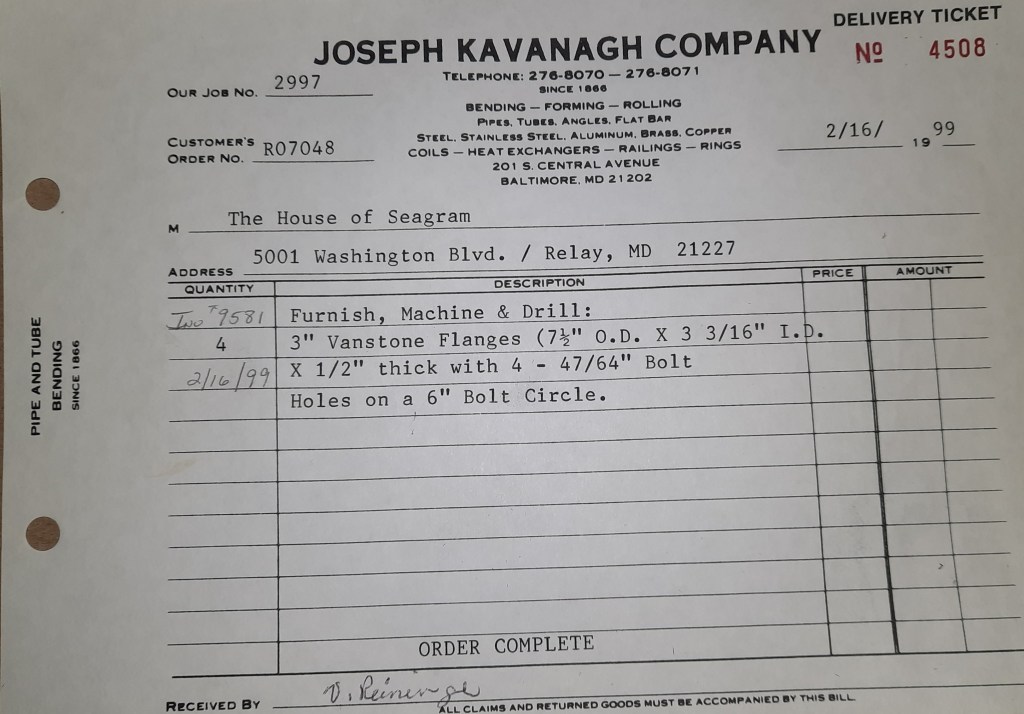 DELIVERY TICKET
JOSEPH KAVANAGH COMPANY
Nº 4508
TELEPHONE: 276-8070 — 276-8071
SINCE 1866
OUR JOB NO. 2997
BENDING — FORMING — ROLLING
PIPES, TUBES, ANGLES, FLAT BAR
STEEL, STAINLESS STEEL, ALUMINUM, BRASS, COPPER
COILS — HEAT EXCHANGERS — RAILINGS — RINGS
201 S. CENTRAL AVENUE
BALTIMORE, MD 21202
CUSTOMER'S
ORDER NO. R07048
2/16/ 19 99
M The House of Seagram
ADDRESS 5001 Washington Blvd. / Relay, MD 21227
QUANTITY DESCRIPTION PRICE AMOUNT
Inv #9581 Furnish, Machine & Drill:
4 3" Vanstone Flanges (7½" O.D. X 3 3/16" I.D.
2/16/99 X 1/2" thick with 4 - 47/64" Bolt
Holes on a 6" Bolt Circle.
ORDER COMPLETE
RECEIVED BY
ALL CLAIMS AND RETURNED GOODS MUST BE ACCOMPANIED BY THIS BILL
PIPE AND TUBE
BENDING
SINCE 1866